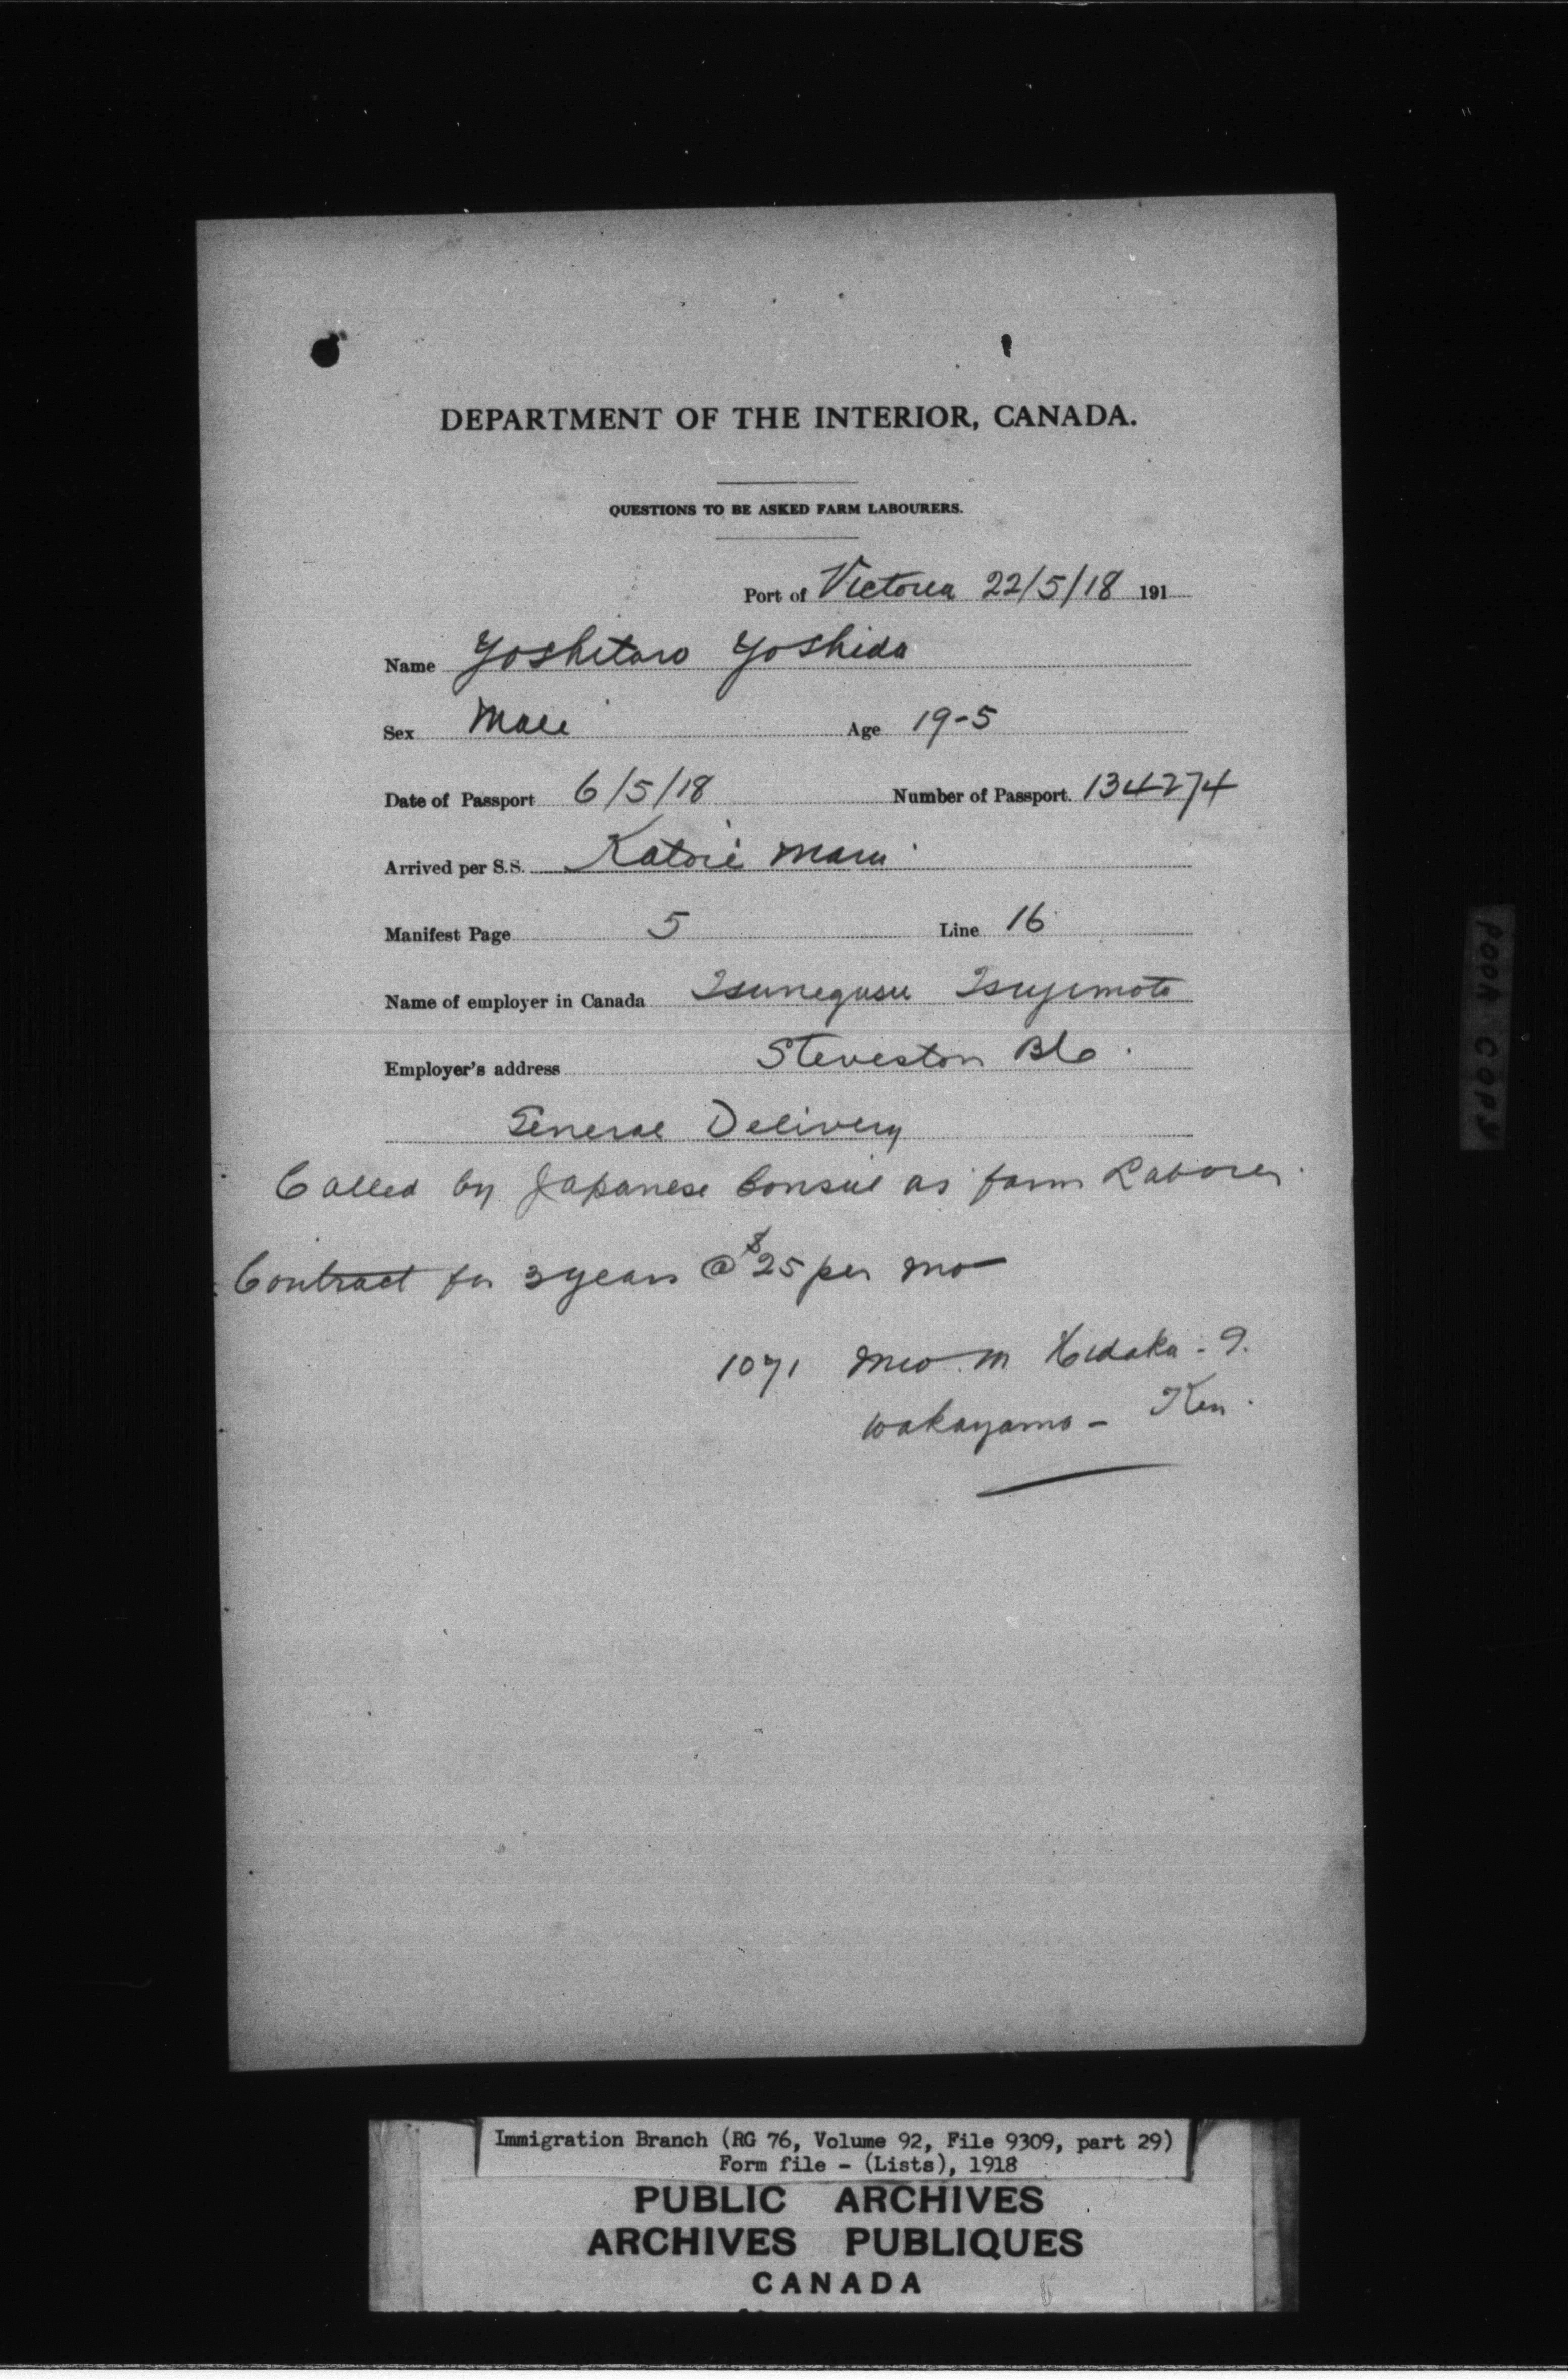 DEPARTMENT OF THE INTERIOR, CANADA.
QUESTIONS TO BE ASKED FARM LABOURERS.
Port of Victoria 22/5/18 191
Name Yoshitaro Yoshida
Sex Male Age 19-5
Date of Passport 6/5/18 Number of Passport. 134274
Arrived per S.S. Katori Maru
Manifest Page 5 Line 16
Name of employer in Canada Tsunegusu Tsujimoto
Employer's address Steveston BC.
General Delivery
Called by Japanese Consul as farm Laborer
Contract for 3 years @ $25 per mo
1071 Mio. M Hidaka - G.
Wakayama - Ken.
POOR COPY
Immigration Branch (RG 76, Volume 92, File 9309, part 29)
Form file - (Lists), 1918
PUBLIC ARCHIVES
ARCHIVES PUBLIQUES
CANADA